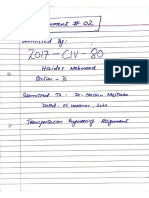 Assignment # 02
Submitted By:
2017-CIV-80
Haider Mehmood
Section - B
Submitted To : Dr. Hassan Mujtaba
Dated : 05 November, 2020
Transportation Engineering Assignment